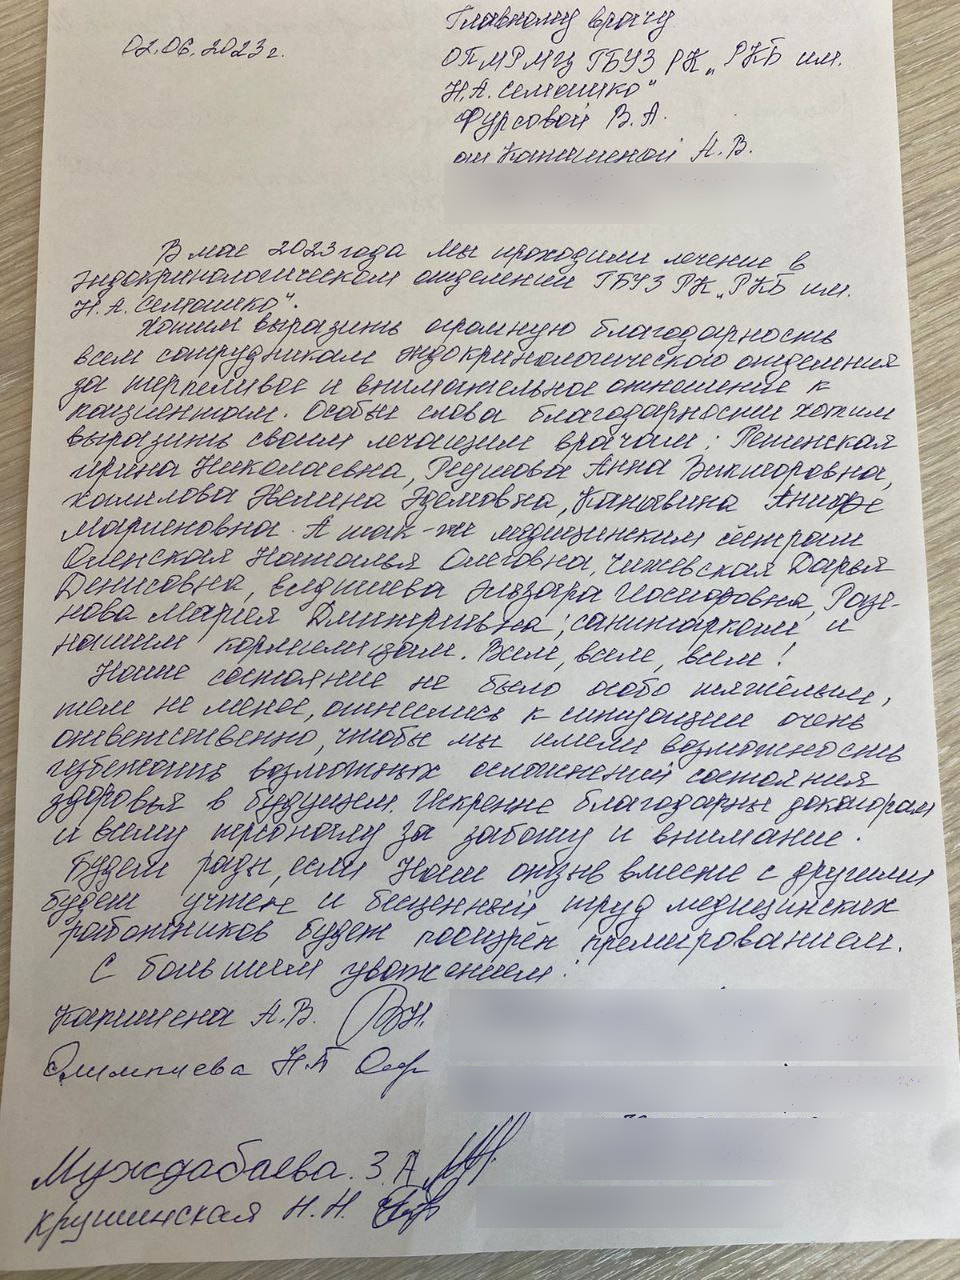 02.06.2023г.
Главному врачу
ОПМРМЦ ГБУЗ РК „РКБ им.
Н.А. Семашко"
Фурсовой В.А.
от Капишеной А.В.
В мае 2023 года мы проходили лечение в
эндокринологическом отделении ГБУЗ РК „РКБ им.
Н.А. Семашко".
Хотим выразить огромную благодарность
всем сотрудникам эндокринологического отделения
за терпеливое и внимательное отношение к
пациентам. Особые слова благодарности хотим
выразить своим лечащим врачам: Репинская
Ирина Николаевна, Реутова Анна Викторовна,
Халилова Эдемовна,
Марленовна. А так-же медицинским сёстрам
Оленская Наталья Олеговна, Чижевская Дарья
Денисовна, Эльзара Разе-
нова Мария Дмитриевна; санитаркам и
нашим кормилицам. Всем, всем, всем!
Наше состояние не было особо тяжёлым,
тем не мение, отнеслись к ситуации очень
ответственно, чтобы мы имели возможность
избежать возможных осложнений состояния
здоровья в будущем. Искренне благодарны докторам
и всему персоналу за заботу и внимание.
Будем рады, если наш отзыв вместе с другими
будет учтен и бесценный труд медицинских
работников будет поощрён премированием.
С большим уважением!
Капишена А.В.
Олимпиева Н.П.
Муждабаева. З.А.
Крушинская Н.Н.